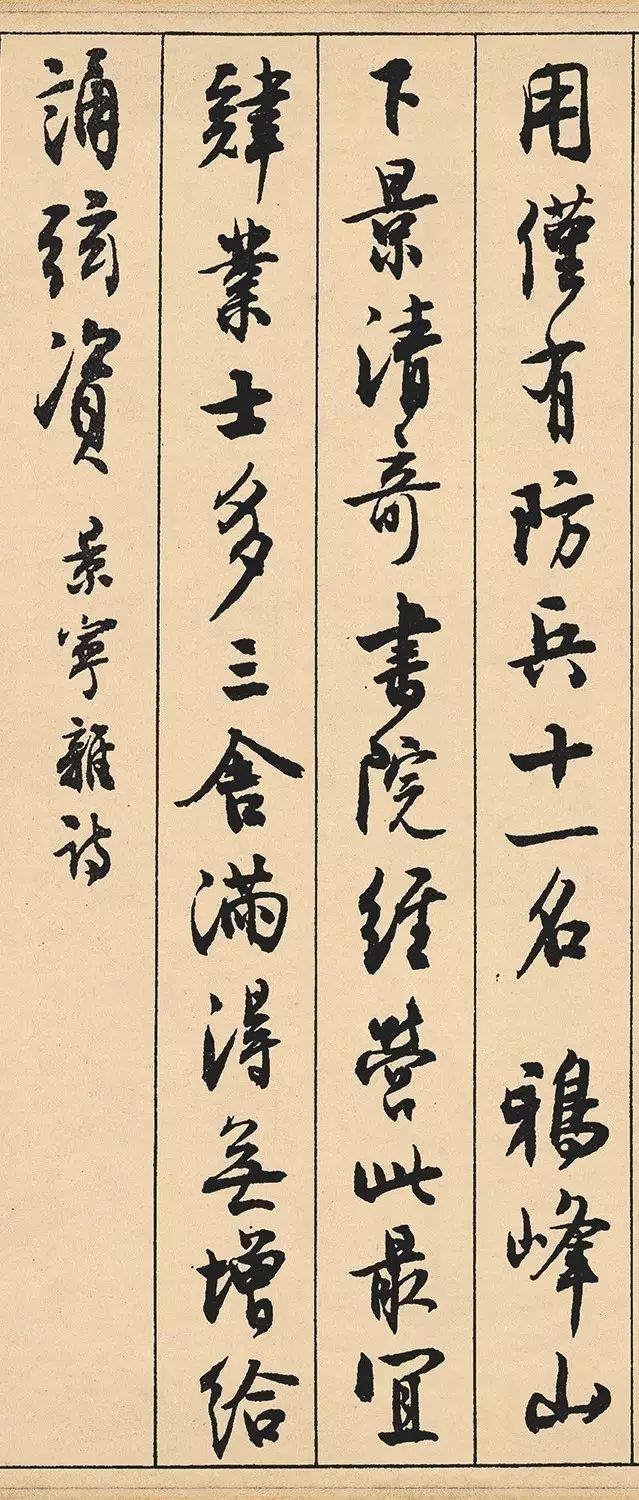 用僅有防兵十一名 鴉峰山
下景清奇書院經營此最宜
肄業士多三舍滿得無增給
誦弦資 景寧雜詩